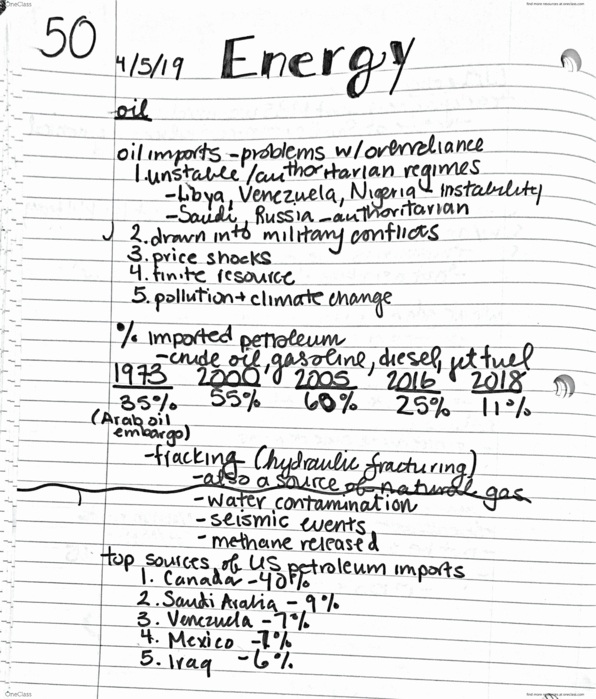 OneClass
find more resources at oneclass.com
50
4/5/19 Energy
oil
oil imports - problems w/ overreliance
1. unstable / authoritarian regimes
- Libya, Venezuela, Nigeria - instability
- Saudi, Russia - authoritarian
2. drawn into military conflicts
3. price shocks
4. finite resource
5. pollution + climate change
% imported petroleum
- crude oil, gasoline, diesel, jet fuel
1973 2000 2005 2016 2018
35% 55% 60% 25% 11%
(Arab oil
embargo)
- fracking (hydraulic fracturing)
- also a source of natural gas
- water contamination
- seismic events
- methane released
top sources of US petroleum imports
1. Canada - 40%
2. Saudi Arabia - 9%
3. Venezuela - 7%
4. Mexico - 7%
5. Iraq - 6%
OneClass
find more resources at oneclass.com